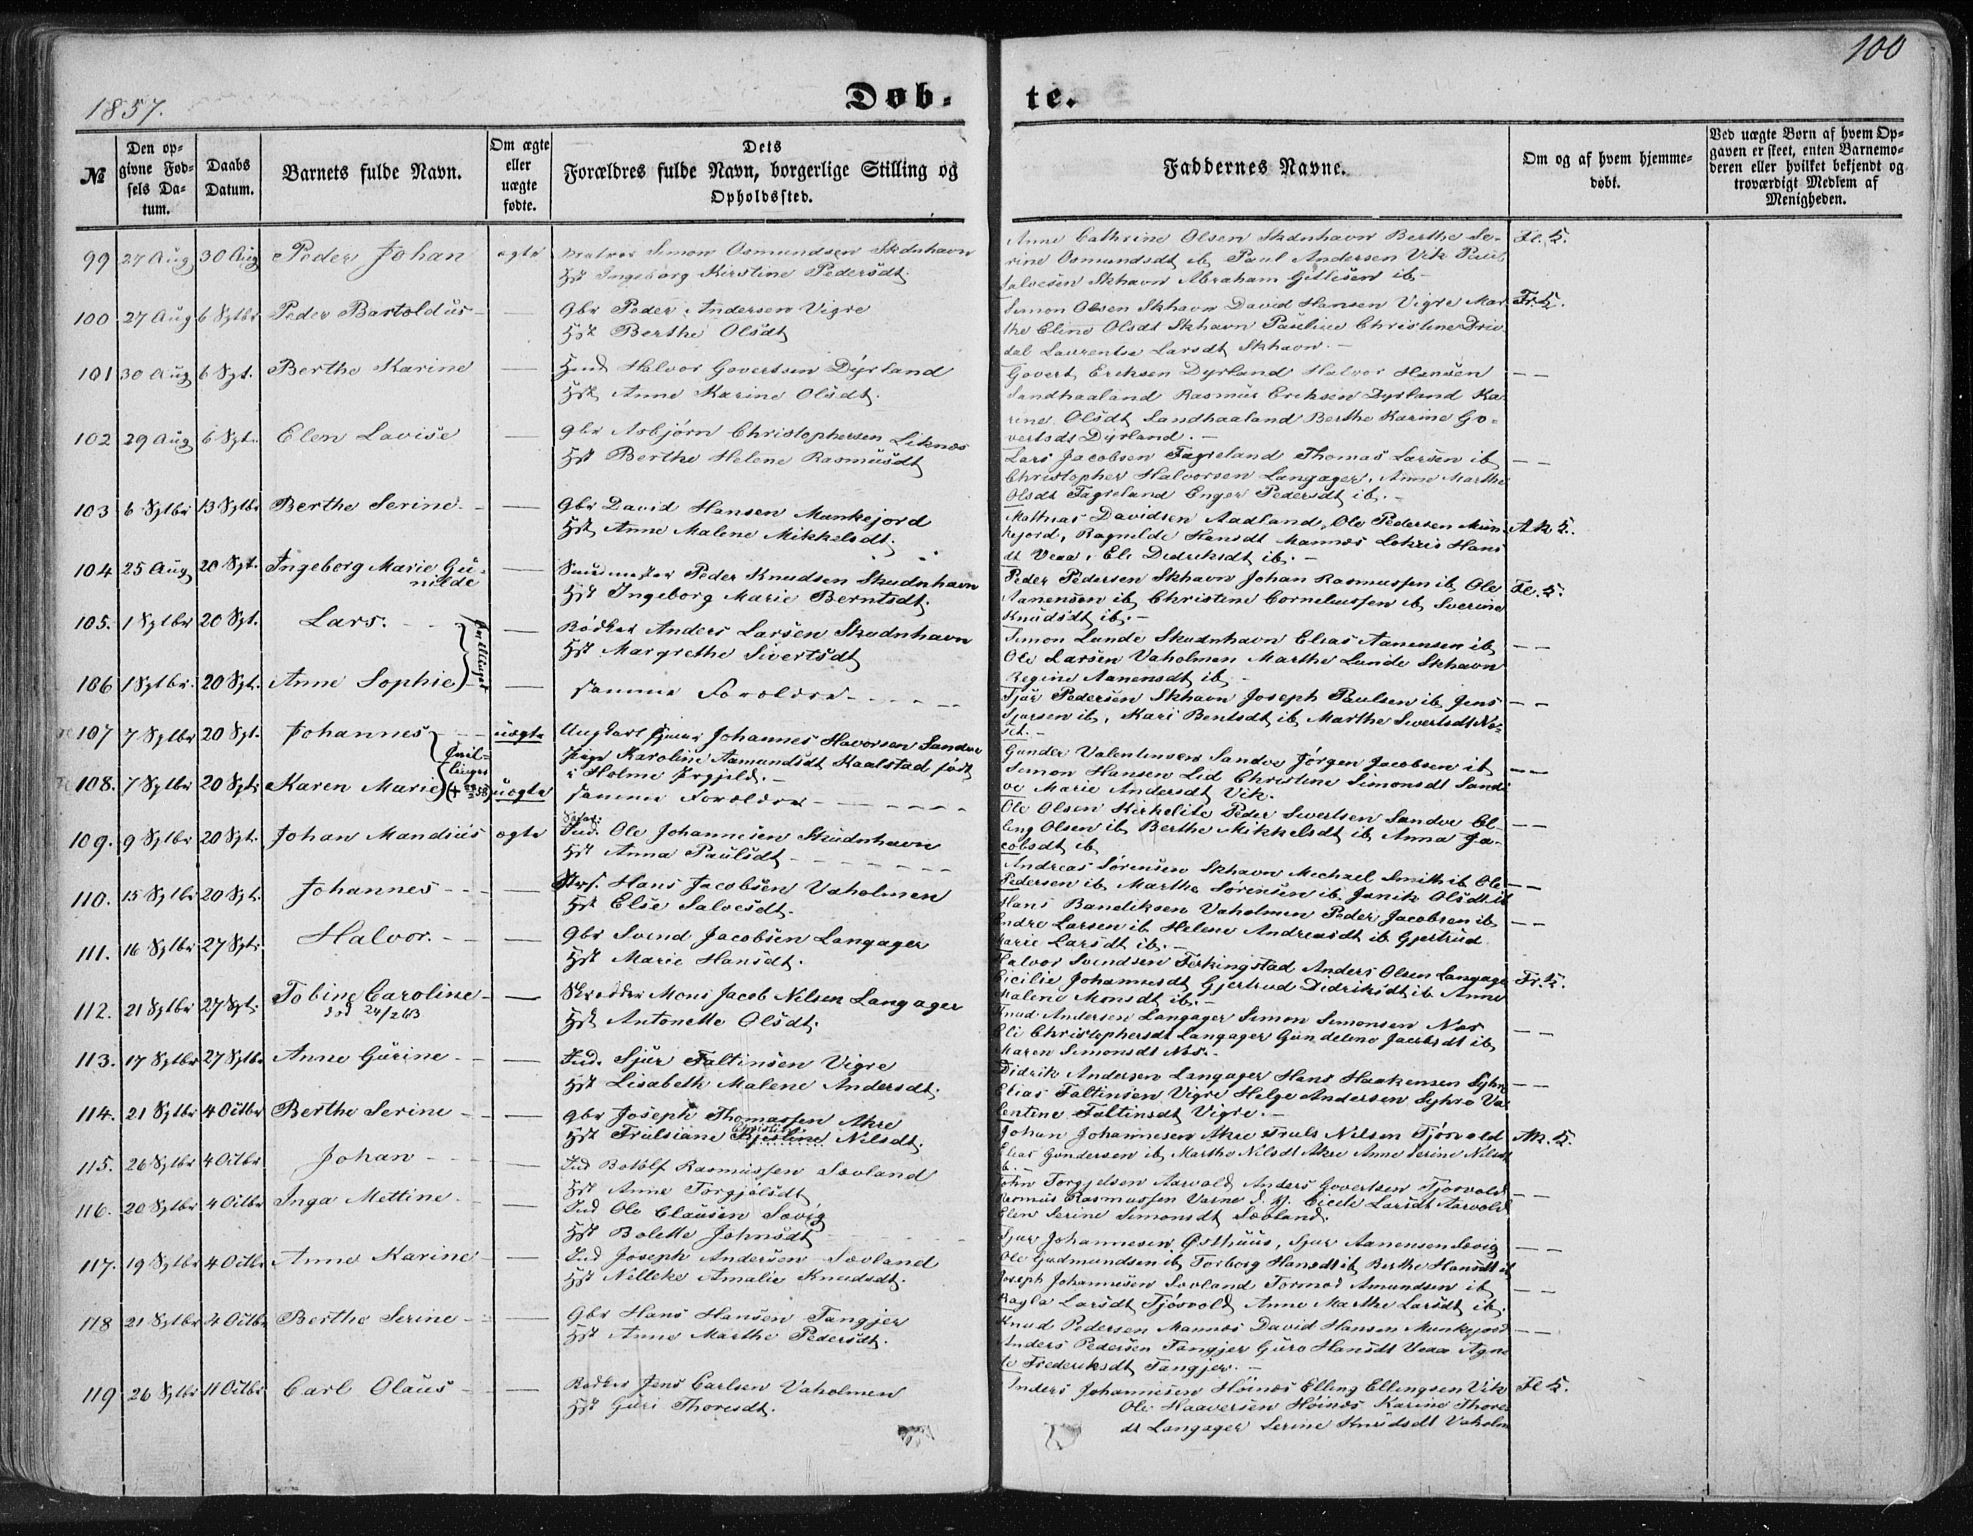 100
1857.
Døb-
te.
№
Den opgivne Fødsels Datum.
Daabs Datum.
Barnets fulde Navn.
Om ægte eller uægte fødte.
Dets Forældres fulde Navn, borgerlige Stilling og Opholdssted.
Faddernes Navne.
Om og af hvem hjemmedøbt.
Ved uægte Børn af hvem Opgaven er skeet, enten Barnemoderen eller hvilket bekjendt og troværdigt Medlem af Menigheden.
99 27 Aug 30 Aug Peder Johan ægte Simon Osmundsen Skudnhavn
Hst Ingeborg Kirstine Pedersdt.
Anne Cathrine Olsen Skudnhavn Berthe Se-
rine Osmundsdt ib Paul Andersen Vik Paul
Salvesen Skhavn Abraham Gitlesen ib
100 27 Aug 6 Sptbr Peder Bartoldus — Gbr Peder Andersen Vigre
Hst Berthe Olsdt
Simon Olsen Skhavn David Hansen Vigre Mar-
the Eline Olsdt Skhavn Pauline Christine
Laurentse Larsdt Skhavn.
101 30 Aug 6 Spt. Berthe Karine — Halvor Govertsen Dyrland
Hst Anne Karine Olsdt.
Govert Eriksen Dyrland Halvor Hansen
Sandhaaland Rasmus Eriksen Dyrland Ka-
rine Olsdt Sandhaaland Berthe Karine Go-
vertsdt Dyrland. —
102 29 Aug 6 Spt. Elen Lavise — Gbr Asbjørn Christophersen Liknæs
Hst Berthe Helene Rasmusdt
Lars Jacobsen Fagreland Thomas Larsen ib
Christopher Halvorsen Langager, Anne Marthe
Olsdt Fagreland Enger Pedersdt ib. —
103 6 Sptbr 13 Sptbr Berthe Serine — Gbr David Hansen Munkejord
Hst Anne Malene Mikkelsdt.
Mathias Davidsen Aadland, Ole Pedersen Mun-
kejord, Ragnilde Hansdt Mannæs Hans
dt Veaa, Eli Didriksdt ib. —
104 25 Aug 20 Spt. Ingeborg Marie Gu-
nilde
— Peder Knudsen Skudnhavn
Hst Ingeborg Marie Berntsdt.
Peder Pedersen Skhavn Johan Rasmussen ib Ole
Aanensen ib Christine Corneliussen ib Sverine
Knudsdt ib. —
105. 1 Sptbr 20 Spt. Lars. — Bødker Anders Larsen Skudnhavn
Hst Margrethe Sivertsdt
Simon Lunde Skudnhavn Elias Aanensen ib
Ole Larsen Vaholmen Marthe Lunde Skhavn
Regine Aanensdt ib
106 1 Sptbr. 20 Spt. Anne Sophie — samme Forældre
Tvillinger
Sjur Pedersen Skhavn Joseph Paulsen ib Jens
Sjursen ib, Kari Bentsdt ib Marthe Sivertsdt
107 7 Sptbr 20 Spt. Johannes uægte Ungkarl Johannes Havorsen Sandve
Pige Karoline Aamundsdt Kaalstad født
i Holme Prgjeld. —
Gunder Valentinsen Sandve Jørgen Jacobsen ib
Simon Hansen Lid Christine Simonsdt Sand-
ve Marie Andersdt Vik.
108. 7 Sptbr 20 Spt. Karen Marie uægte samme Forældre
Tvillinger
Ole Olsen Kirkeleite Peder Sivertsen Sandve El-
ling Olsen ib Berthe Mikkelsdt ib Anna Ja-
cobsdt ib
109. 9 Sptbr 20 Spt. Johan Mandius ægte Ind. Ole Johannesen Skudnhavn
Hst Anna Paulsdt
Andreas Sørensen Skhavn Mechael Smith ib Ole
Pedersen ib, Marthe Sørensen ib Janik Olsdt ib
110. 15 Sptbr 20 Spt. Johannes — Hans Jacobsen Vaholmen
Hst Else Salvesdt.
Hans Bendiksen Vaholmen Peder Jacobsen ib
Endre Larsen ib Helene Andreasdt ib Gjertrud
Marie Larsdt ib. —
111. 16 Sptbr 27 Spt. Halvor. — Gbr Svend Jacobsen Langager
Hst Marie Hansdt.
Halvor Svendsen Ferkingstad Anders Olsen Langage
Cicilie Johannesdt Gjertrud Didriksdt ib Anne
Malene Monsdt ib. —
112. 21 Sptbr 27 Spt. Tobine Caroline — Skrædder Mons Jacob Nilsen Langager
24/2 63
Hst Antonette Olsdt.
Knud Andersen Langager Simon Simonsen Nes
Eli Christophersdt Langager Gundeline Jacobsdt ib,
Maren Simonsdt Nes. —
113. 17 Sptbr 27 Sptbr Anne Gurine — Ind. Sjur Faltinsen Vigre
Hst Lisabeth Malene Andersdt.
Didrik Andersen Langager Hans Haakensen Syhre
Elias Faltinsen Vigre Helge Andersen Syhre Va-
lentine Faltinsdt Vigre. —
114. 21 Sptbr 4 Octbr Berthe Serine — Gbr Joseph Thomassen Akre
Hst Trulsiane Kjestine Nilsdt.
Johan Johannesen Akre Truls Nilsen Tjøsvold
Elias Gundersen ib Marthe Nilsdt Akre Anne Serine Nilsdt
ib. —
115. 26 Sptbr 4 Octbr Johan — Ind Botolf Rasmussen Sævland
Hst Anne Torgjelsdt
John Torgjelsen Aarvold Anders Govertsen Tjøsvold
Rasmus Rasmussen Varne Cicele Larsdt Aarvold
Elen Serine Simonsdt Sævland.
116. 20 Sptbr 4 Octbr Inga Mettine — Ind Ole Clausen Sævig
Hst Bolette Johnsdt
Sjur Johannesen Østhuus, Sjur Aanensen Sævig
Ole Gudmundsen ib Torborg Hansdt ib Berthe Hansdt ib
117. 19 Sptbr 4 Octbr Anne Karine — Ind Joseph Andersen Sævland
Hst Nilleke Amalie Knudsdt.
Joseph Johannesen Sævland Tormod Amundsen ib
Ragla Larsdt Tjøsvold, Anne Marthe Larsdt ib.
118 21 Sptbr 4 Octbr Berthe Serine — Gbr Hans Hansen Tangjer
Hst Anne Marthe Pedersdt.
Knud Pedersen Mannes David Hansen Munkejord
Anders Pedersen Tangjer Guro Hansdt Veaa Agne-
te Frederiksdt Tangjer. —
119 26 Sptbr 11 Octbr Carl Olaus — Bødker Jens Carlsen Vaholmen
Hst Guri Thoresdt.
Anders Johannesen Høinæs Elling Ellingsen Vik
Ole Haaversen Høinæs Karine Thores
dt Langager Serine Knudsdt Vaholm